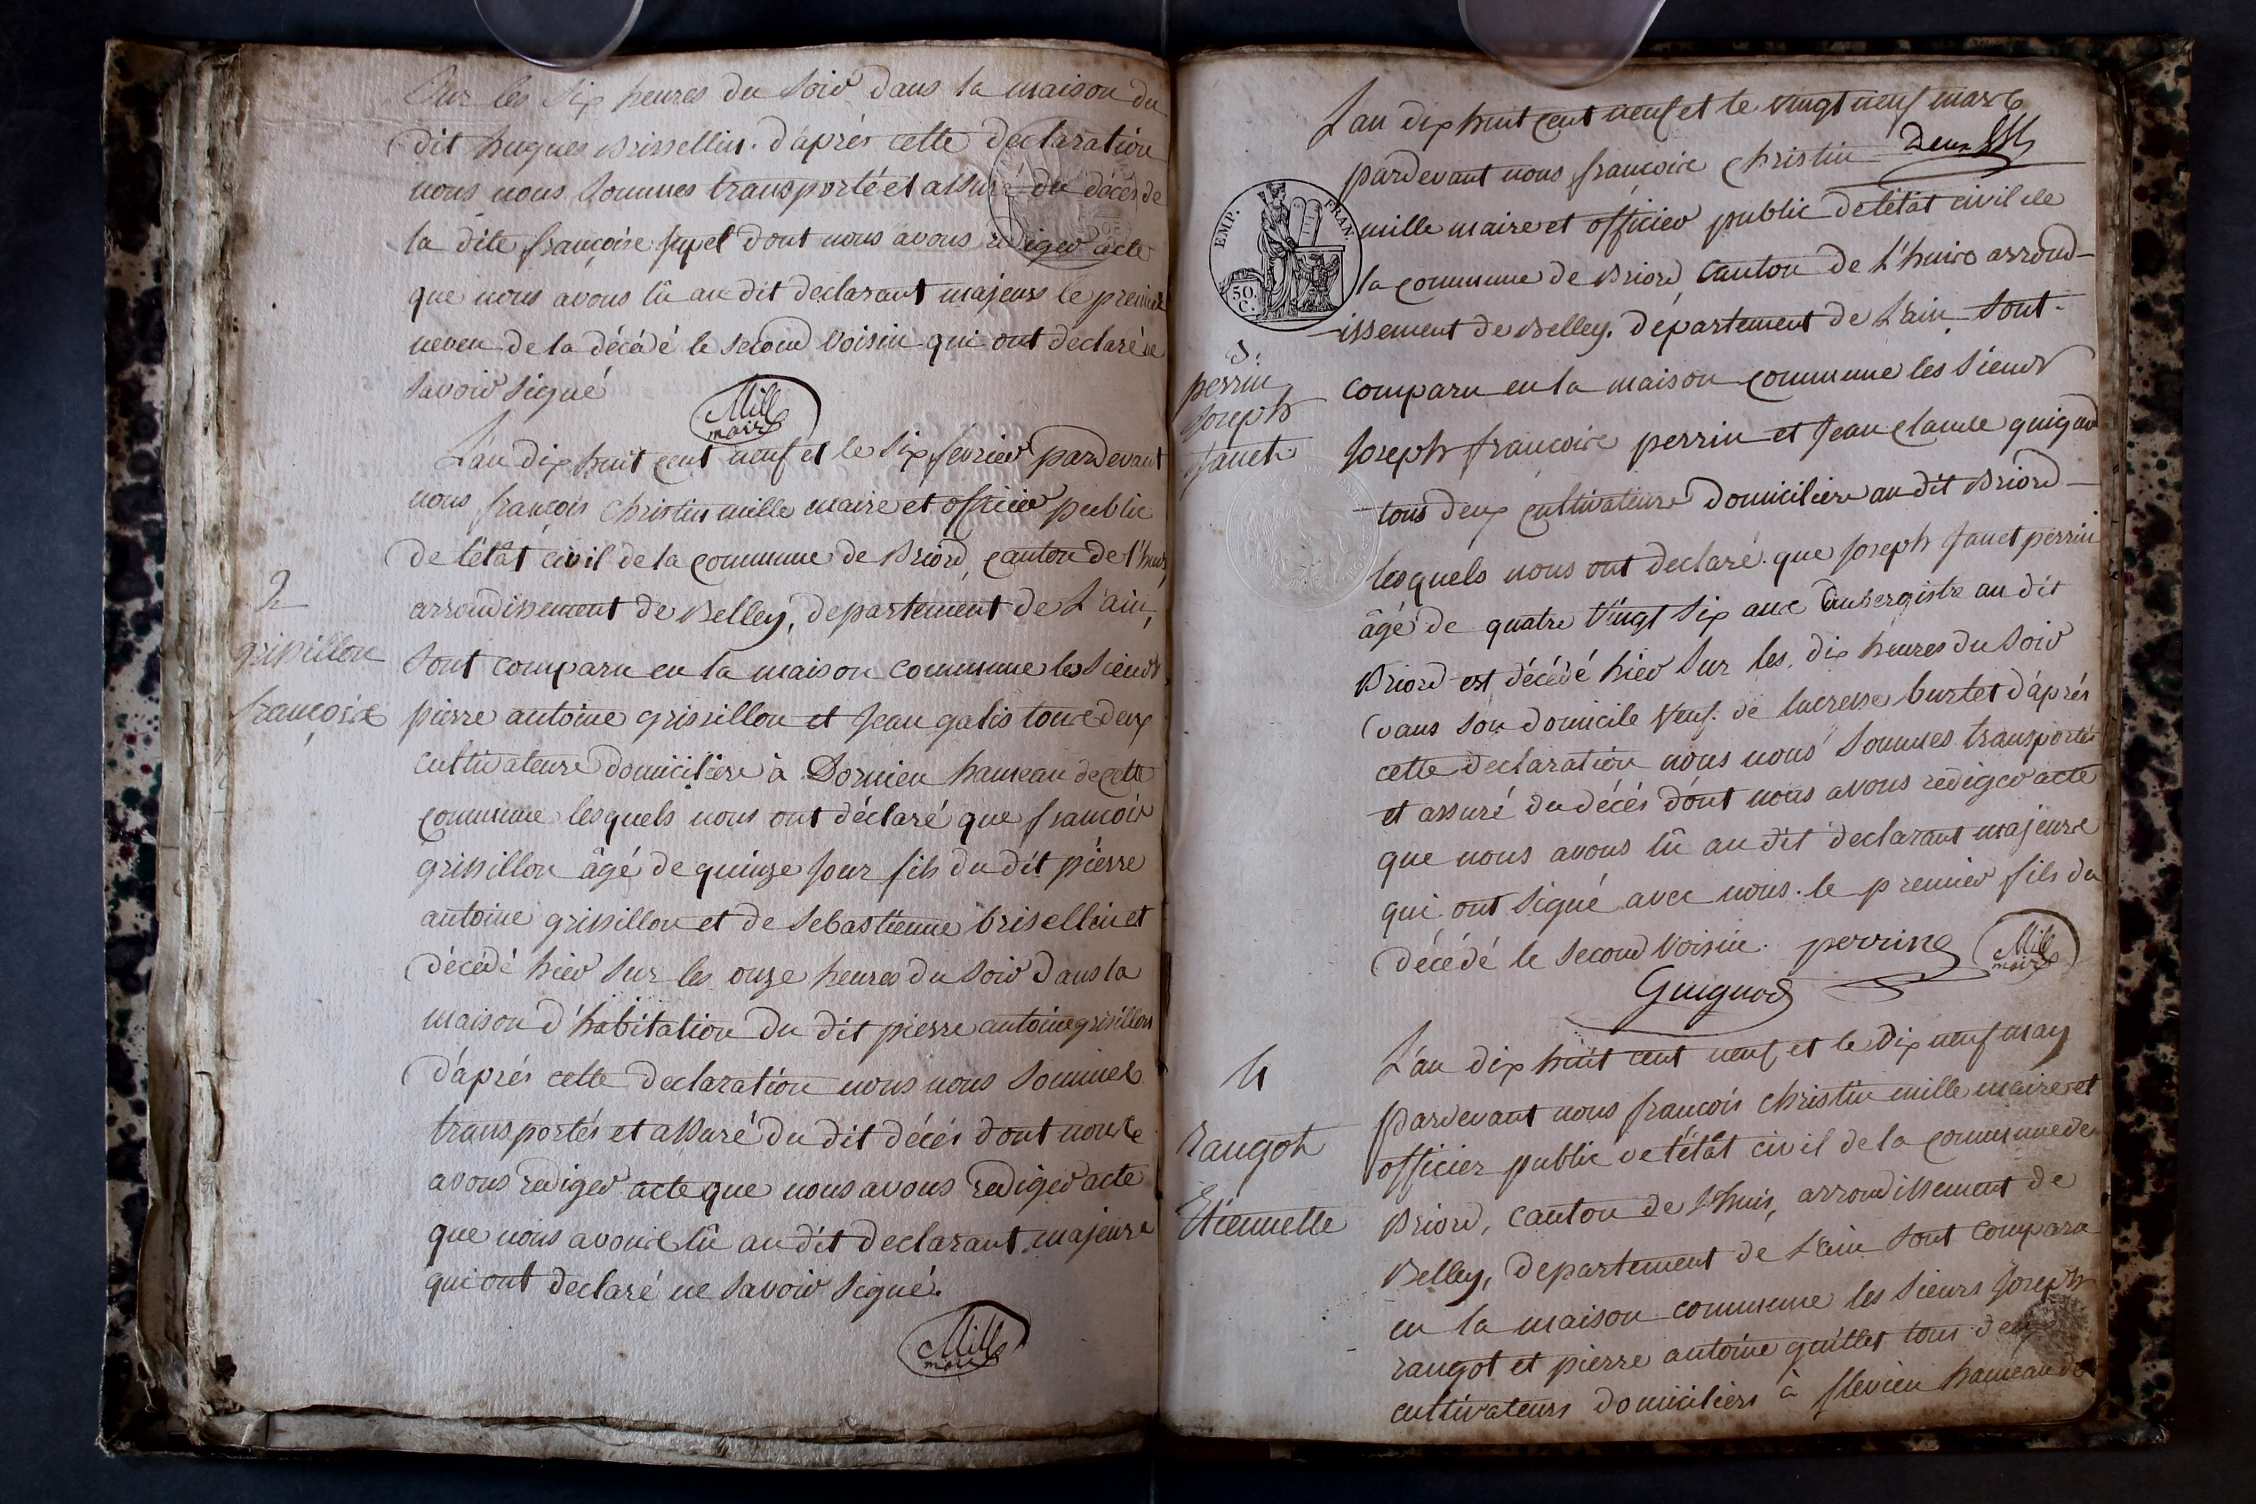 Sur les six heures du soir dans la maison du
dit hugues Brissellin. d'aprés cette declaration
nous nous sommes transporté et assuré du décés de
la dite françoise jupel dont nous avons rediger acte
que nous avons lû au dit declarant majeurs le premier
neveu de la décédé le second voisin qui ont declaré ne
savoir signé
Mill
maire
L'an dix huit cent neuf et le six fevrier pardevant
nous françois christin mille maire et officier public
de l'état civil de la commune de Briord, canton de l'huis,
arrondissement de Belley, departement de L'ain,
2
grissillon
françois
sont comparu en la maison commune les sieurs
pierre antoine grissillon et jean galis tous deux
cultivateurs domiciliers à Dornieu hameau de cette
commune lesquels nous ont déclaré que françois
grissillon âgé de quinze jour fils du dit piérre
antoine grissillon et de sebastienne brisellin et
décédé hier sur les onze heures du soir dans la
maison d'habitation du dit pierre antoine grisillon
d'aprés cette declaration nous nous sommes
transportés et assuré du dit décés dont nous
avons rediger acte que nous avons rediger acte
que nous avons lû au dit declarant majeurs
qui ont declaré ne savoir signé.
Mill
maire
L'an dix huit cent neuf et le vingt neuf mars
pardevant nous françois christin
mille maire et officier public de l'état civil de
la commune de Briord canton de l'huis arrond-
issement de Belley. département de L'ain sont
EMP. FRAN.
50.
C.
3.
perrin
Joseph
Janet
comparu en la maison commune les sieurs
joseph françois perrin et jean claude guignod
tous deux cultivateurs domiciliers au dit Briord
lesquels nous ont declaré que joseph janet perrin
âgé de quatre vingt six ans aubergiste au dit
Briord est décédé hier sur les dix heures du soir
dans son domicile veuf de lucresse burtet d'aprés
cette declaration nous nous sommes transportés
et assuré du décés dont nous avons rediger acte
que nous avons lû au dit declarant majeurs
qui ont signé avec nous. le premier fils du
décédé le second voisin. perrin
Mill
maire
Guignod
4
rangot
Etiennette
L'an dix huit cent neuf et le dix neuf may
pardevant nous françois christin mille maire et
officier public de l'état civil de la commune de
Briord, canton de l'huis, arrondissement de
Belley, departement de L'ain sont comparu
en la maison commune les sieurs joseph
rangot et pierre antoine guillet tous deux
cultivateurs domiciliers à flevieu hameau de